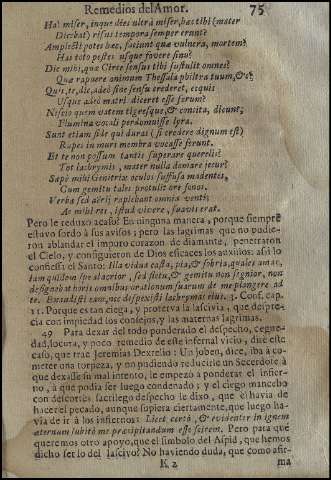 Remedios del Amor. 75
Ha! miser, inque dies ultra miser, hæc tibi (mater
Dicebat) risus tempora semper erunt?
Amplecti potes hæc, faciunt quæ vulnera, mortem?
Hæc toto pestes usque fovere sinu?
Dic mihi, quæ Circe sensus tibi sustulit omnes?
Quæ rapuere animum Thessala philtra tuum, &c?
Quis, te, dic, adeò sine sensu crederet, ecquis
Usque adeò matri diceret esse ferum?
Nescio quem vatem tigresque, & concita, dicunt,
Flumina vocali perdomuisse lyra.
Sunt etiam fide qui duras (si credere dignum est)
Rupes in muri membra vocasse ferunt.
Et te non possum tantis superare querelis?
Tot lachrymis, mater nulla domare queror?
Sæpè mihi Genitrix oculos suffusa madentes,
Cum gemitu tales protulit ore sonos.
Verba sed aërij rapiebant omnia venti;
Ac mihi res, istud vivere, suavis erat.
Pero le reduxo acaso? En ninguna manera, porque siempre
estuvo sordo à sus avisos; pero las lagrimas que no pudie-
ron ablandar el impuro corazon de diamante, penetraron
el Cielo, y consiguieron de Dios eficaces los auxilios: assi lo
confiessa el Santo: Illa vidua casta, pia, & sobria, quales amas,
iam quidem spe alacrior, sed fletu, & gemitu non segnior, non
desinebat horis omnibus orationum suarum de me plangere ad
te. Exaudisti eam, nec despexisti lachrymas eius. 3. Conf. cap.
11. Porque es tan ciega, y proterva la lascivia, que despre-
cia con impiedad los consejos, y las maternas lagrimas.
49 Para dexar del todo ponderado el despecho, cegue-
dad, locura, y poco remedio de este infernal vicio, dire este
caso, que trae Jeremias Drexelio: Un joben, dice, iba à co-
meter una torpeza, y no pudiendo reducirle un Sacerdote à
que dexasse su mal intento, le empezò à ponderar el infier-
no, à que podia ser luego condenado; y el ciego mancebo
con descortès, sacrilego despecho le dixo, que el havia de
hacer el pecado, aunque supiera ciertamente, que luego ha-
via de ir à los infiernos: Licet certò, & evidenter in ignem
æternum subitò me præcipitandum esse scirem. Pero para què
queremos otro apoyo, que el simbolo del Aspid, que hemos
dicho ser lo del lascivo? No haviendo duda, que como afir-
K 2 ma